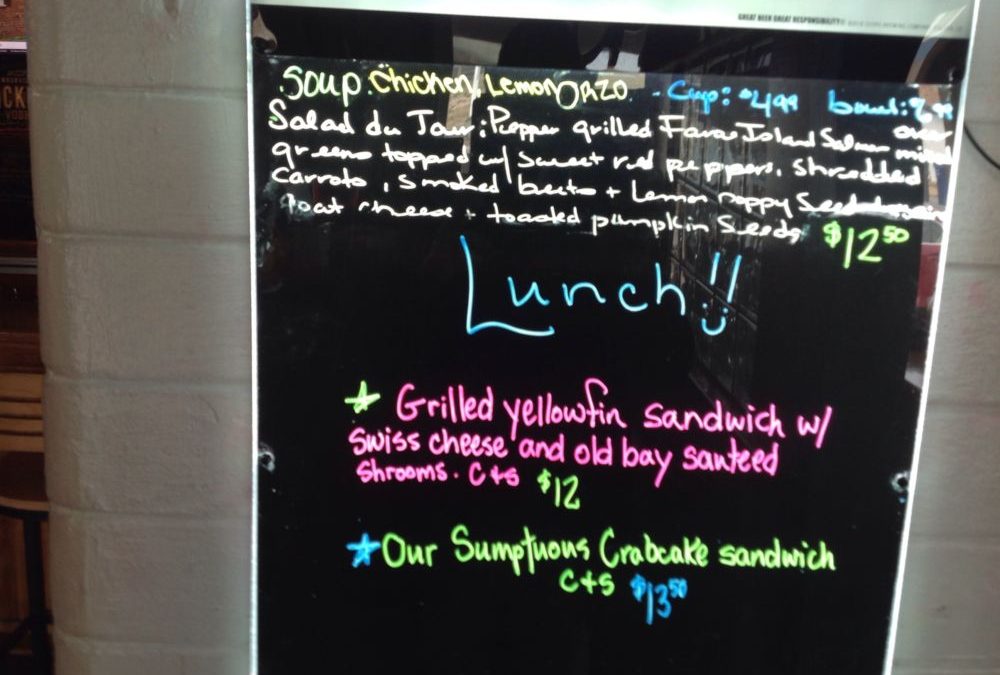 GREAT BEER GREAT RESPONSIBILITY®
Soup. Chicken, Lemon Orzo - Cup: $4.99 bowl: 7.99
Salad du Jour: Pepper grilled Faroe Island Salmon over
greens topped w/ sweet red peppers, shredded
carrots, smoked beets + Lemon Poppy Seed
goat cheese + toasted pumpkin seeds $12.50
Lunch!!
Grilled yellowfin sandwich w/
swiss cheese and old bay santeed
shrooms. C+S $12
Our Sumptuous Crabcake sandwich
C+S $13.50